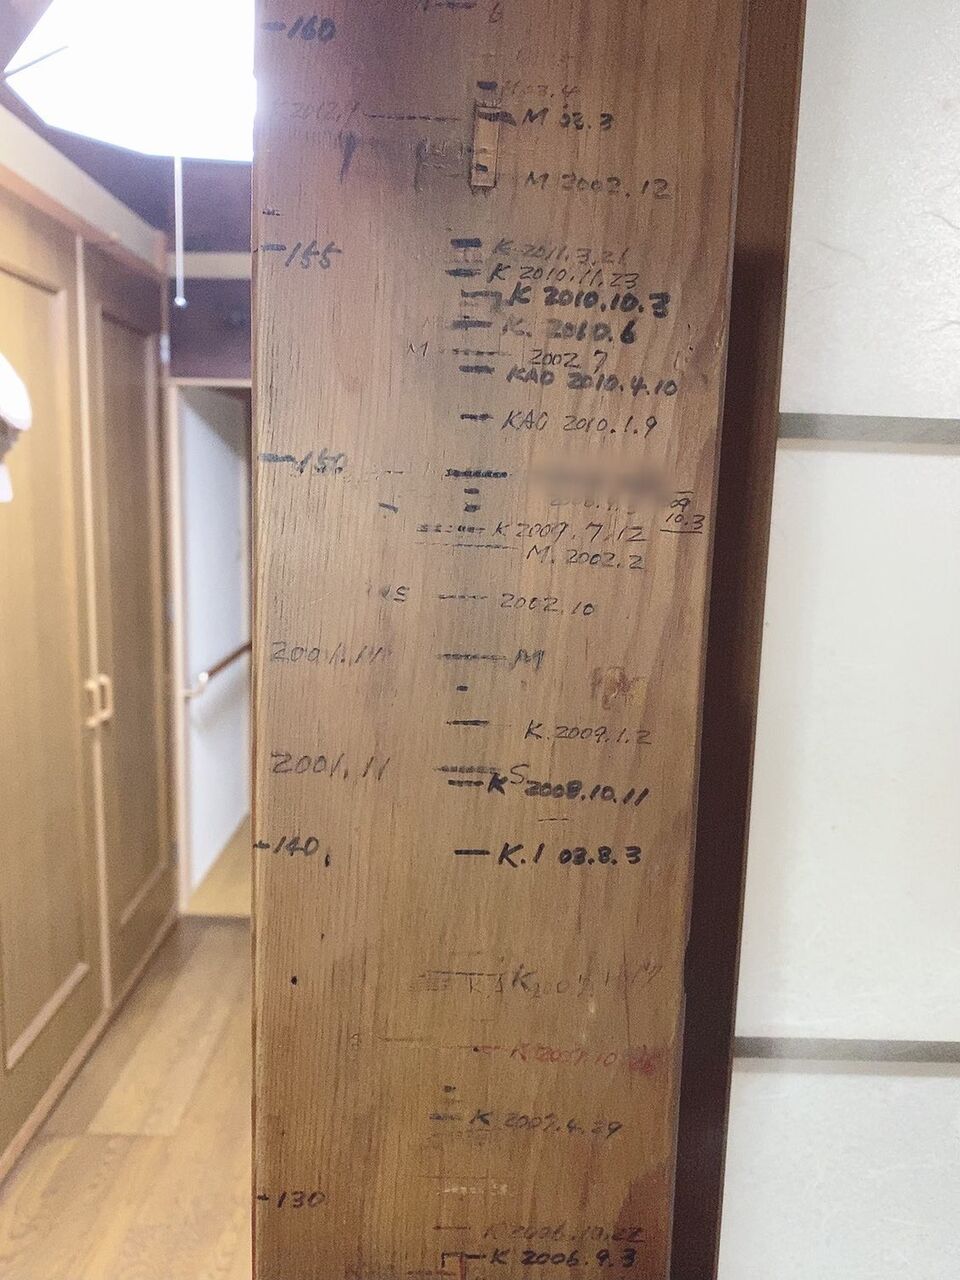 6
160
M 03.4
2012.1
M 03.3
M 2002.12
155
K 2011.3.21
K 2010.11.23
K 2010.10.3
K. 2010.6
M 2002.7
KAO 2010.4.10
KAO 2010.1.9
150
09
10.3
K 2009.7.12
M. 2002.2
S 2002.10
2001.11 M
K. 2009.1.2
2001.11 S
K 2008.10.11
140
K.1 03.8.3
K 2007.10.26
K 2007.4.29
130
K 2006.10.22
K 2006.9.3